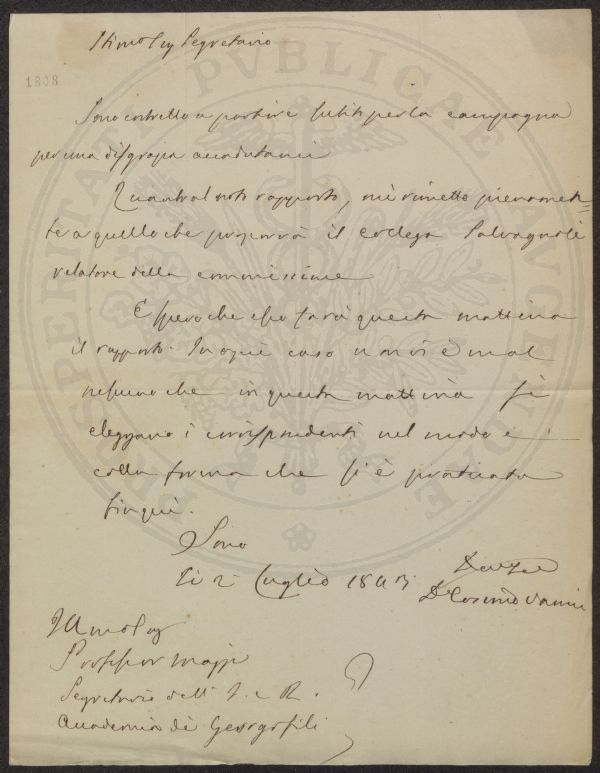 Stimo Sig Segretario
1808
Sono costretto a partire subito per la campagna
per una disgrazia accadutami
Quanto al noto rapporto, mi rimetto pienamen=
te a quello che proporrà il collega Salvagnoli
relatore della commissione
E spero che esso farà questa mattina
il rapporto. In ogni caso non vi è mal
nessuno che in questa mattina si
eleggano i corrispondenti nel modo e
colla forma che si è praticata
finquì.
Sono
Li 2 Luglio 1843
Dr Cosimo Vanni
Illmo Sig
Professor
Segretario dell' I. e R.
Accademia dei Georgofili
PROSPERITATI PVBLICAE AVGENDAE